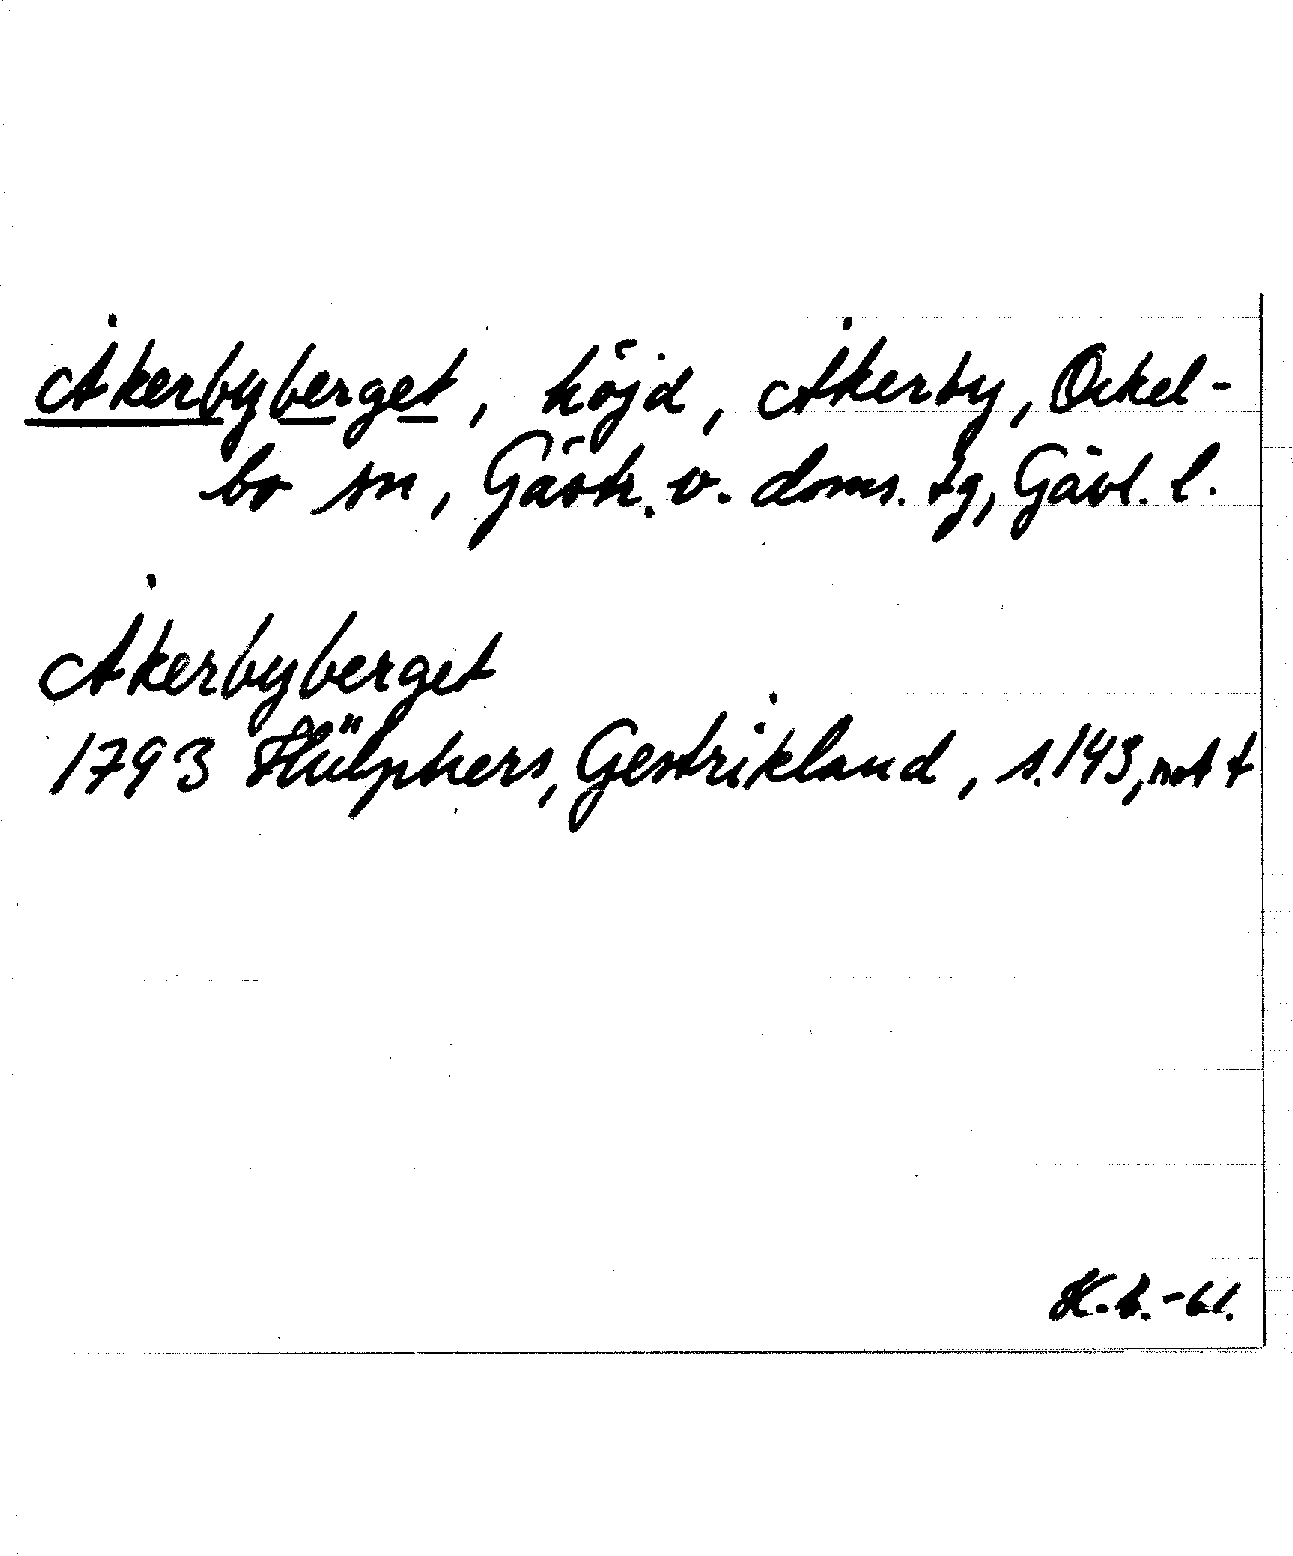 Åkerbyberget, höjd, Åkerby, Ockel-
bo sn, Gästr. v. doms. tg, Gävl. l.
Åkerbyberget
1793 Hülphers, Gestrikland, s. 143, not t
H.b.-61.